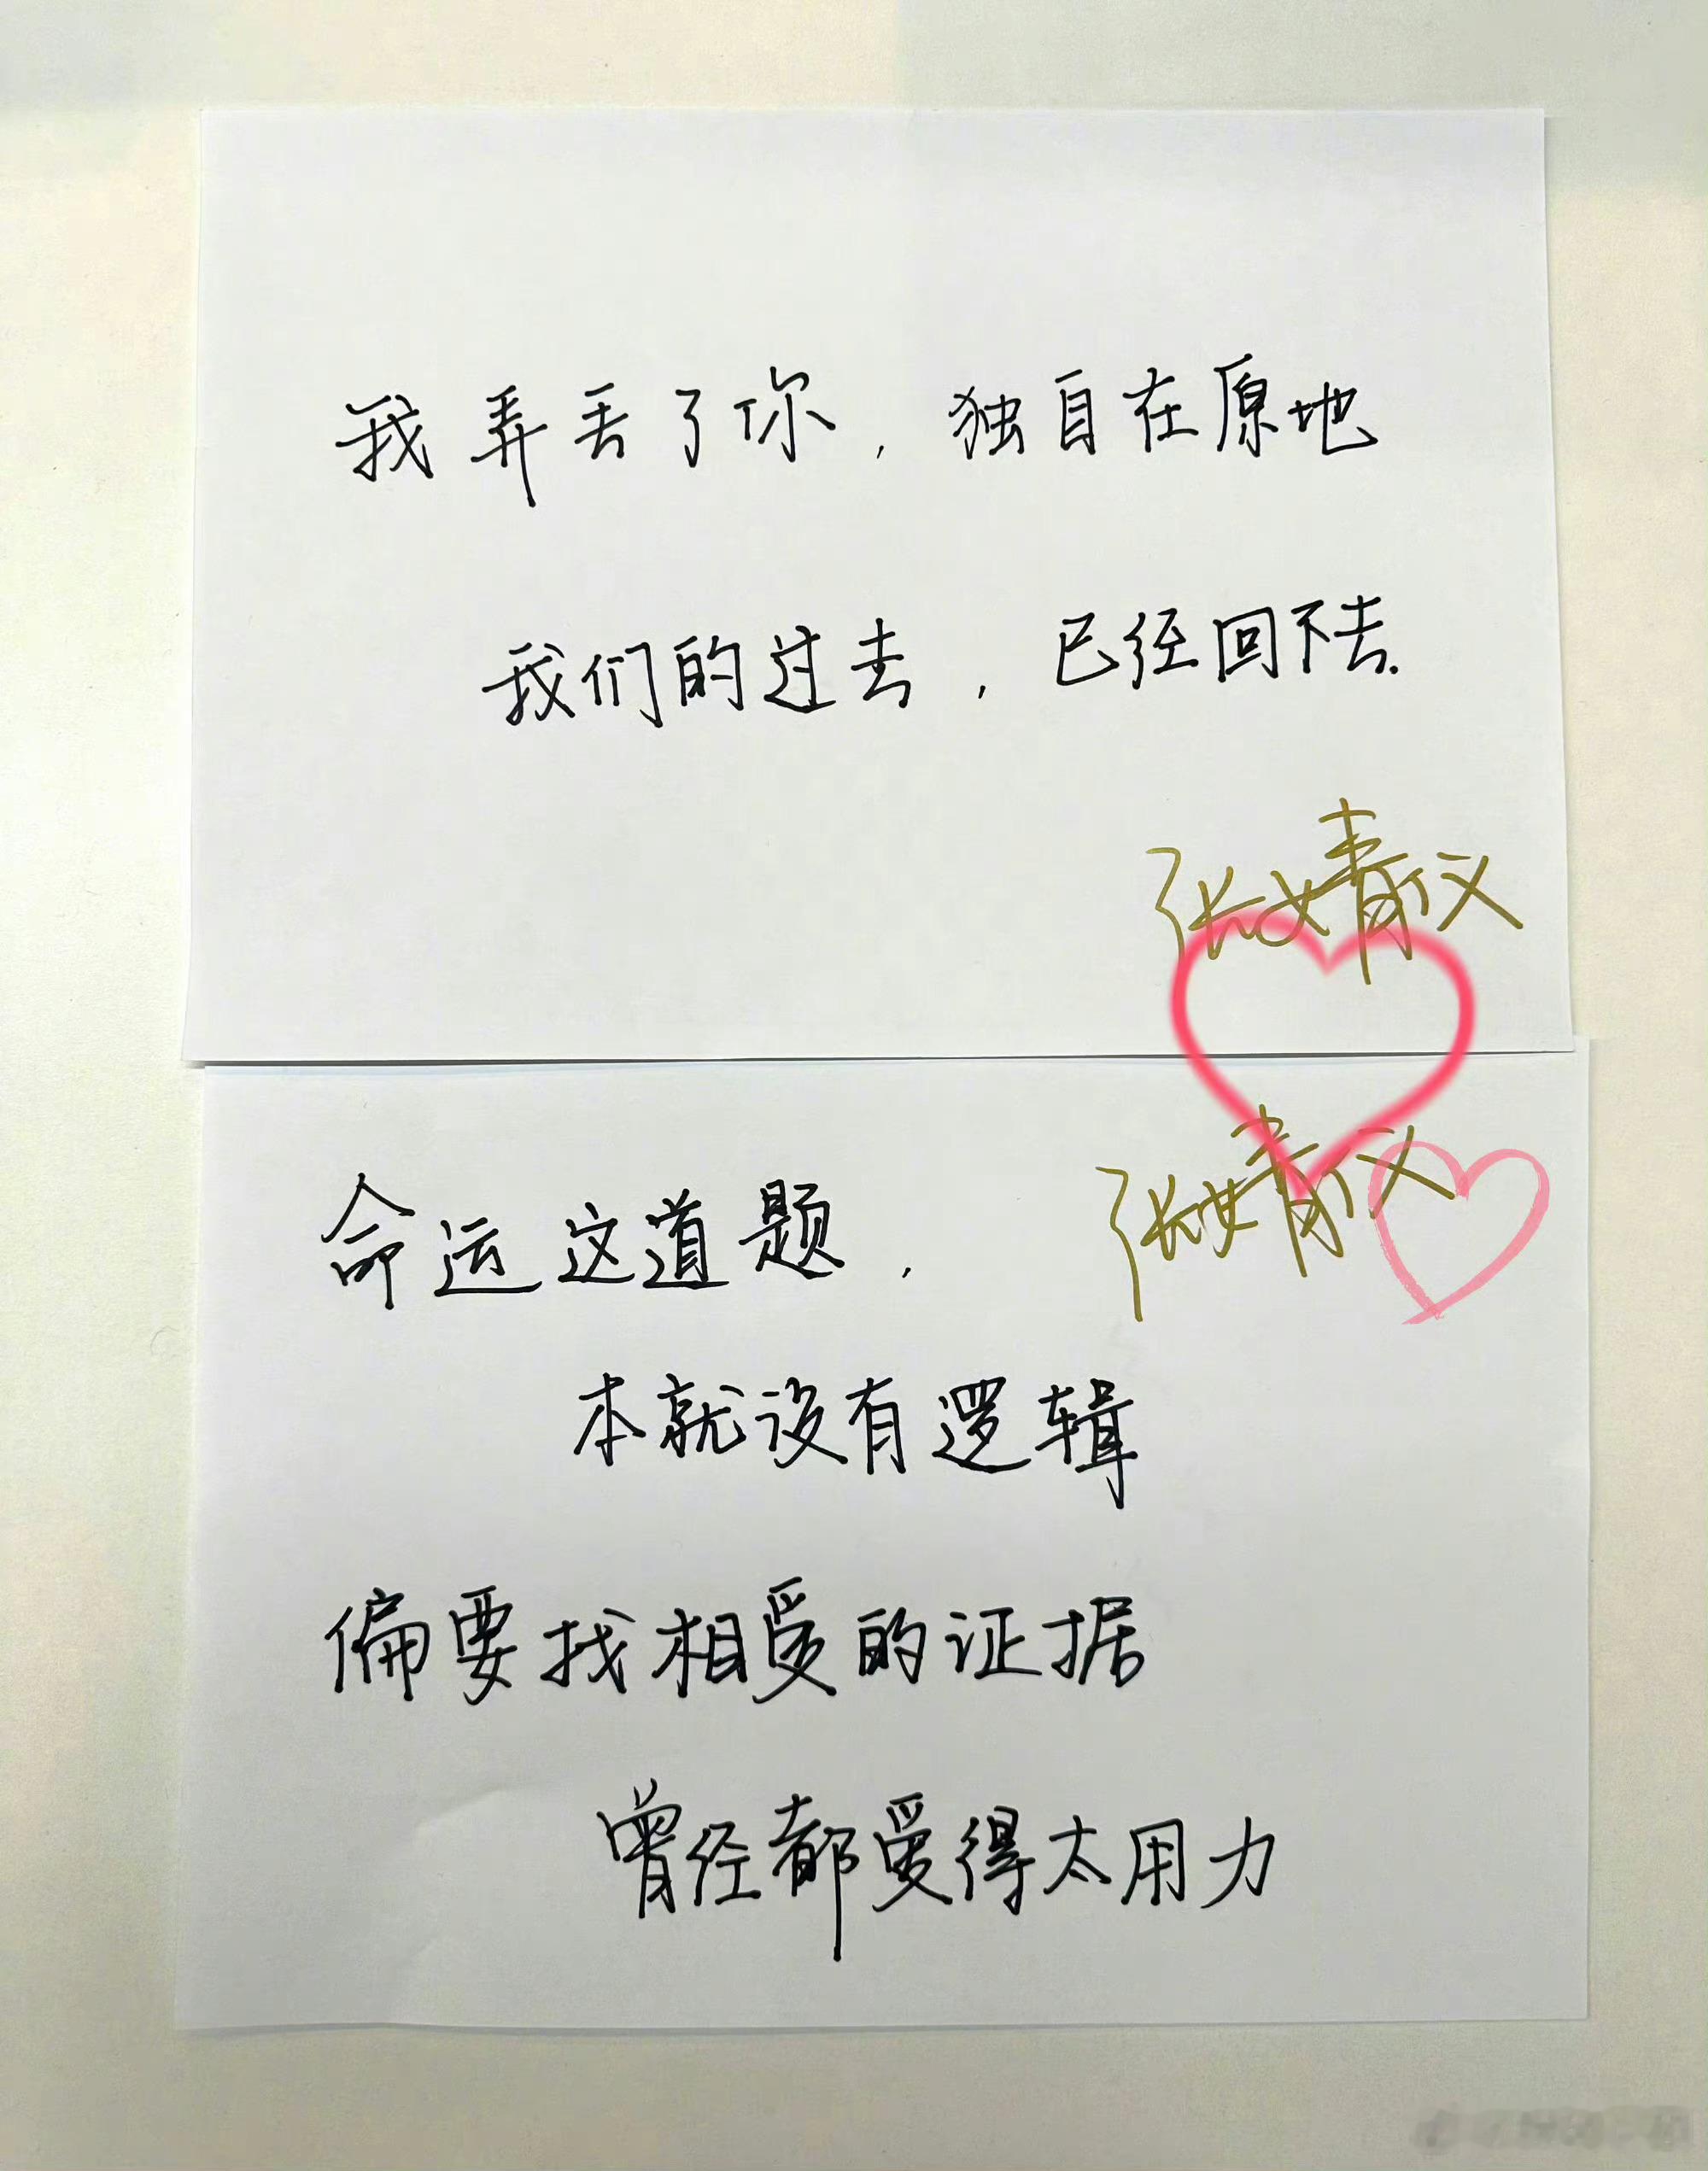 我弄丢了你，独自在原地
我们的过去，已经回不去.
张婧仪
命运这道题，
张婧仪
本就没有逻辑
偏要找相爱的证据
曾经都爱得太用力